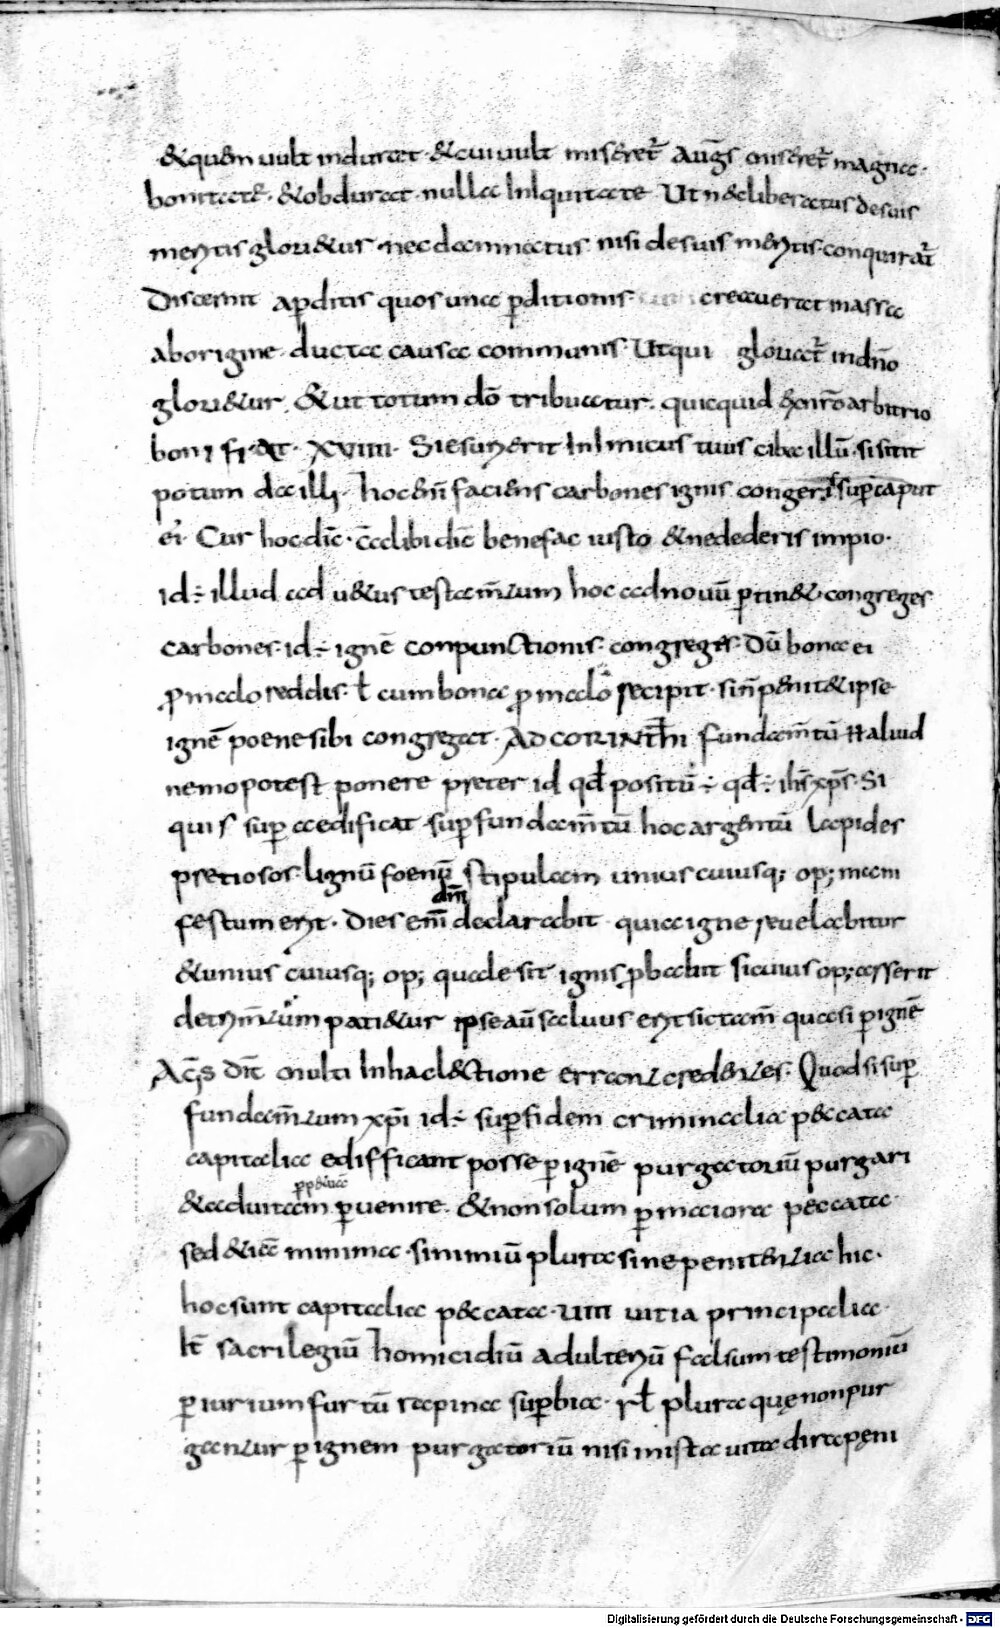 &quem uult indurat · &cui uult miseret̃ Aug̃s miseret̃ magna ·
bonitate · & obdurat · nulla Iniquitate Ut n& liberatus de suis
meritis glori&ur · nec damnatus nisi de suis meritis · conquirat̃
Discernit a p̱ditis quos una p̱ditionis creauerat massa
ab origine ducta causa communis · Ut qui gloriat̃ in dño
glori&ur · & ut totum dõ tribuatur · quicquid
boni XVIIII · Si esurierit Inimicus tuus ciba illũ · si sitit
potum da illi · hoc eñ faciens carbones ignis congeris sup̱ caput
ei᾽ Cur hoc dic̃ · c̃ alibi dic̃ benefac iusto & ne dederis impio ·
id ÷ illud ad u&us testam̃tum hoc ad nouũ p̱tin& · congreges
carbones · id ÷ ignẽ conpunctionis · congreges · Dũ bona ei
ꝓ malo reddis · ł cum bona ꝓ malo recipit · sin̄ penit& ipse
ignẽ poene sibi congregat · AD CORINTHI fundam̃tũ aliud
nemo potest ponere preter id qđ positũ ÷ qđ ÷ ihs̃ xp̃s · Si
quis sup̱ aedificat · sup̱ fundam̃tũ hoc argentũ lapides
pretiosos · lignũ foenũ stipulam unius cuiusq; op; mani
festum erit · Dies em̃ dm̃ declarabit quia igne reuelabitur
& unius cuiusq; op; quale sit ignis ꝓbabit si cuius op; arserit
detrim̃tum pati&ur ipse aũ saluus erit sic tam̃ quasi p̱ ignẽ
Ac̃s dic̃ multi In hac lectione errant credentes · Quod si sup̱
fundam̃tum xp̃i id ÷ sup̱ fidem criminalia peccata
capitalia edifficant posse p̱ ignẽ purgatoriũ purgari
& ad uitam p̱p&uã p̱uenire · & non solum p̱ maiora peccata ·
sed & iã minima · si nimiũ plura sine penitentia hic ·
hoc sunt capitalia peccata · UIIII uitia principalia ·
ht̃ sacrilegiũ homicidiũ adulteriũ falsum testimoniũ
p̱iurium furtũ rapina sup̱bia · rł plura quę non pur
gantur p̱ ignem purgatoriũ nisi in ista uita dira pęni
Digitalisierung gefördert durch die Deutsche Forschungsgemeinschaft - DFG